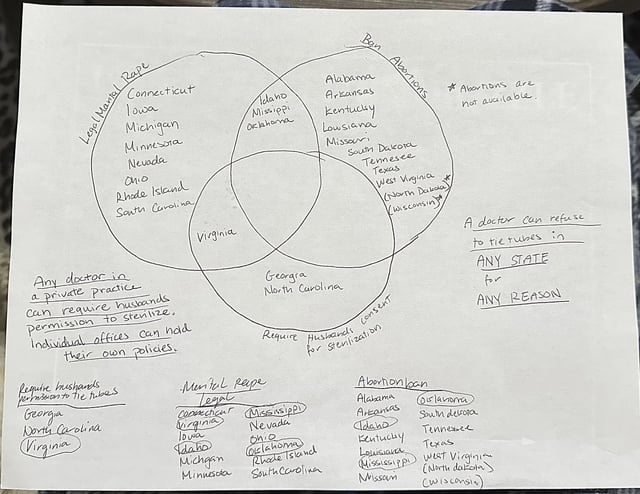 Legal Marital Rape
Ban Abortions
Connecticut
Iowa
Michigan
Minnesota
Nevada
Ohio
Rhode Island
South Carolina
Idaho
Missippi
Oklahoma
Alabama
Arkansas
Kentucky
Lousiana
Missouri
South Dakota
Tennesee
Texas
West Virginia
(North Dakota)*
(Wisconsin)*
* Abortions are
not available.
Virginia
Georgia
North Carolina
Require Husbands consent
for sterilization
Any doctor in
a private practice
can require husbands
permission to sterilize.
Individual offices can hold
their own policies.
A doctor can refuse
to tie tubes in
ANY STATE
for
ANY REASON
Require husbands
permission to tie tubes
Georgia
North Carolina
Virginia
Marital Rape
Legal
Connecticut
Virginia
Iowa
Idaho
Michigan
Minnesota
Mississippi
Nevada
Ohio
Oklahoma
Rhode Island
South Carolina
Abortion ban
Alabama
Arkansas
Idaho
Kentucky
Lousiana
Mississippi
Oklahoma
South dakota
Tennesee
Texas
West Virginia
(North dakota)
(Wisconsin)